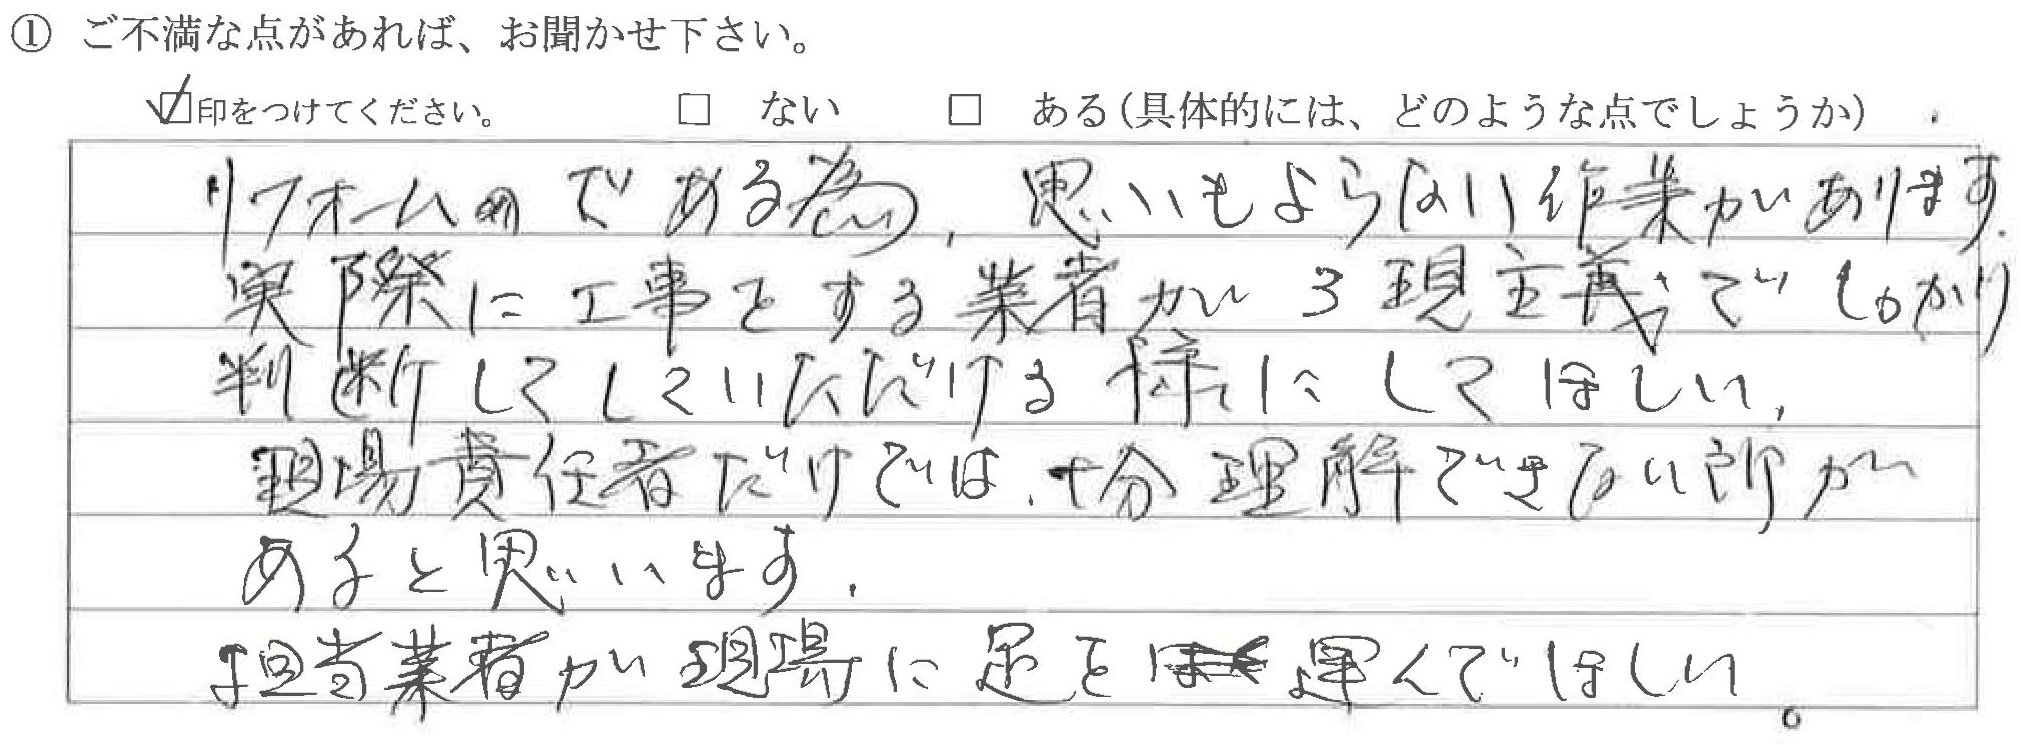 ① ご不満な点があれば、お聞かせ下さい。
☑印をつけてください。 □ ない □ ある(具体的には、どのような点でしょうか)
リフォームのである為、思いもよらない作業があります.
実際に工事をする業者が3現主義でしっかり
判断してしていただける様にしてほしい、
現場責任者だけでは、十分理解できない所が
あると思います.
担当業者が現場に足を運んでほしい。